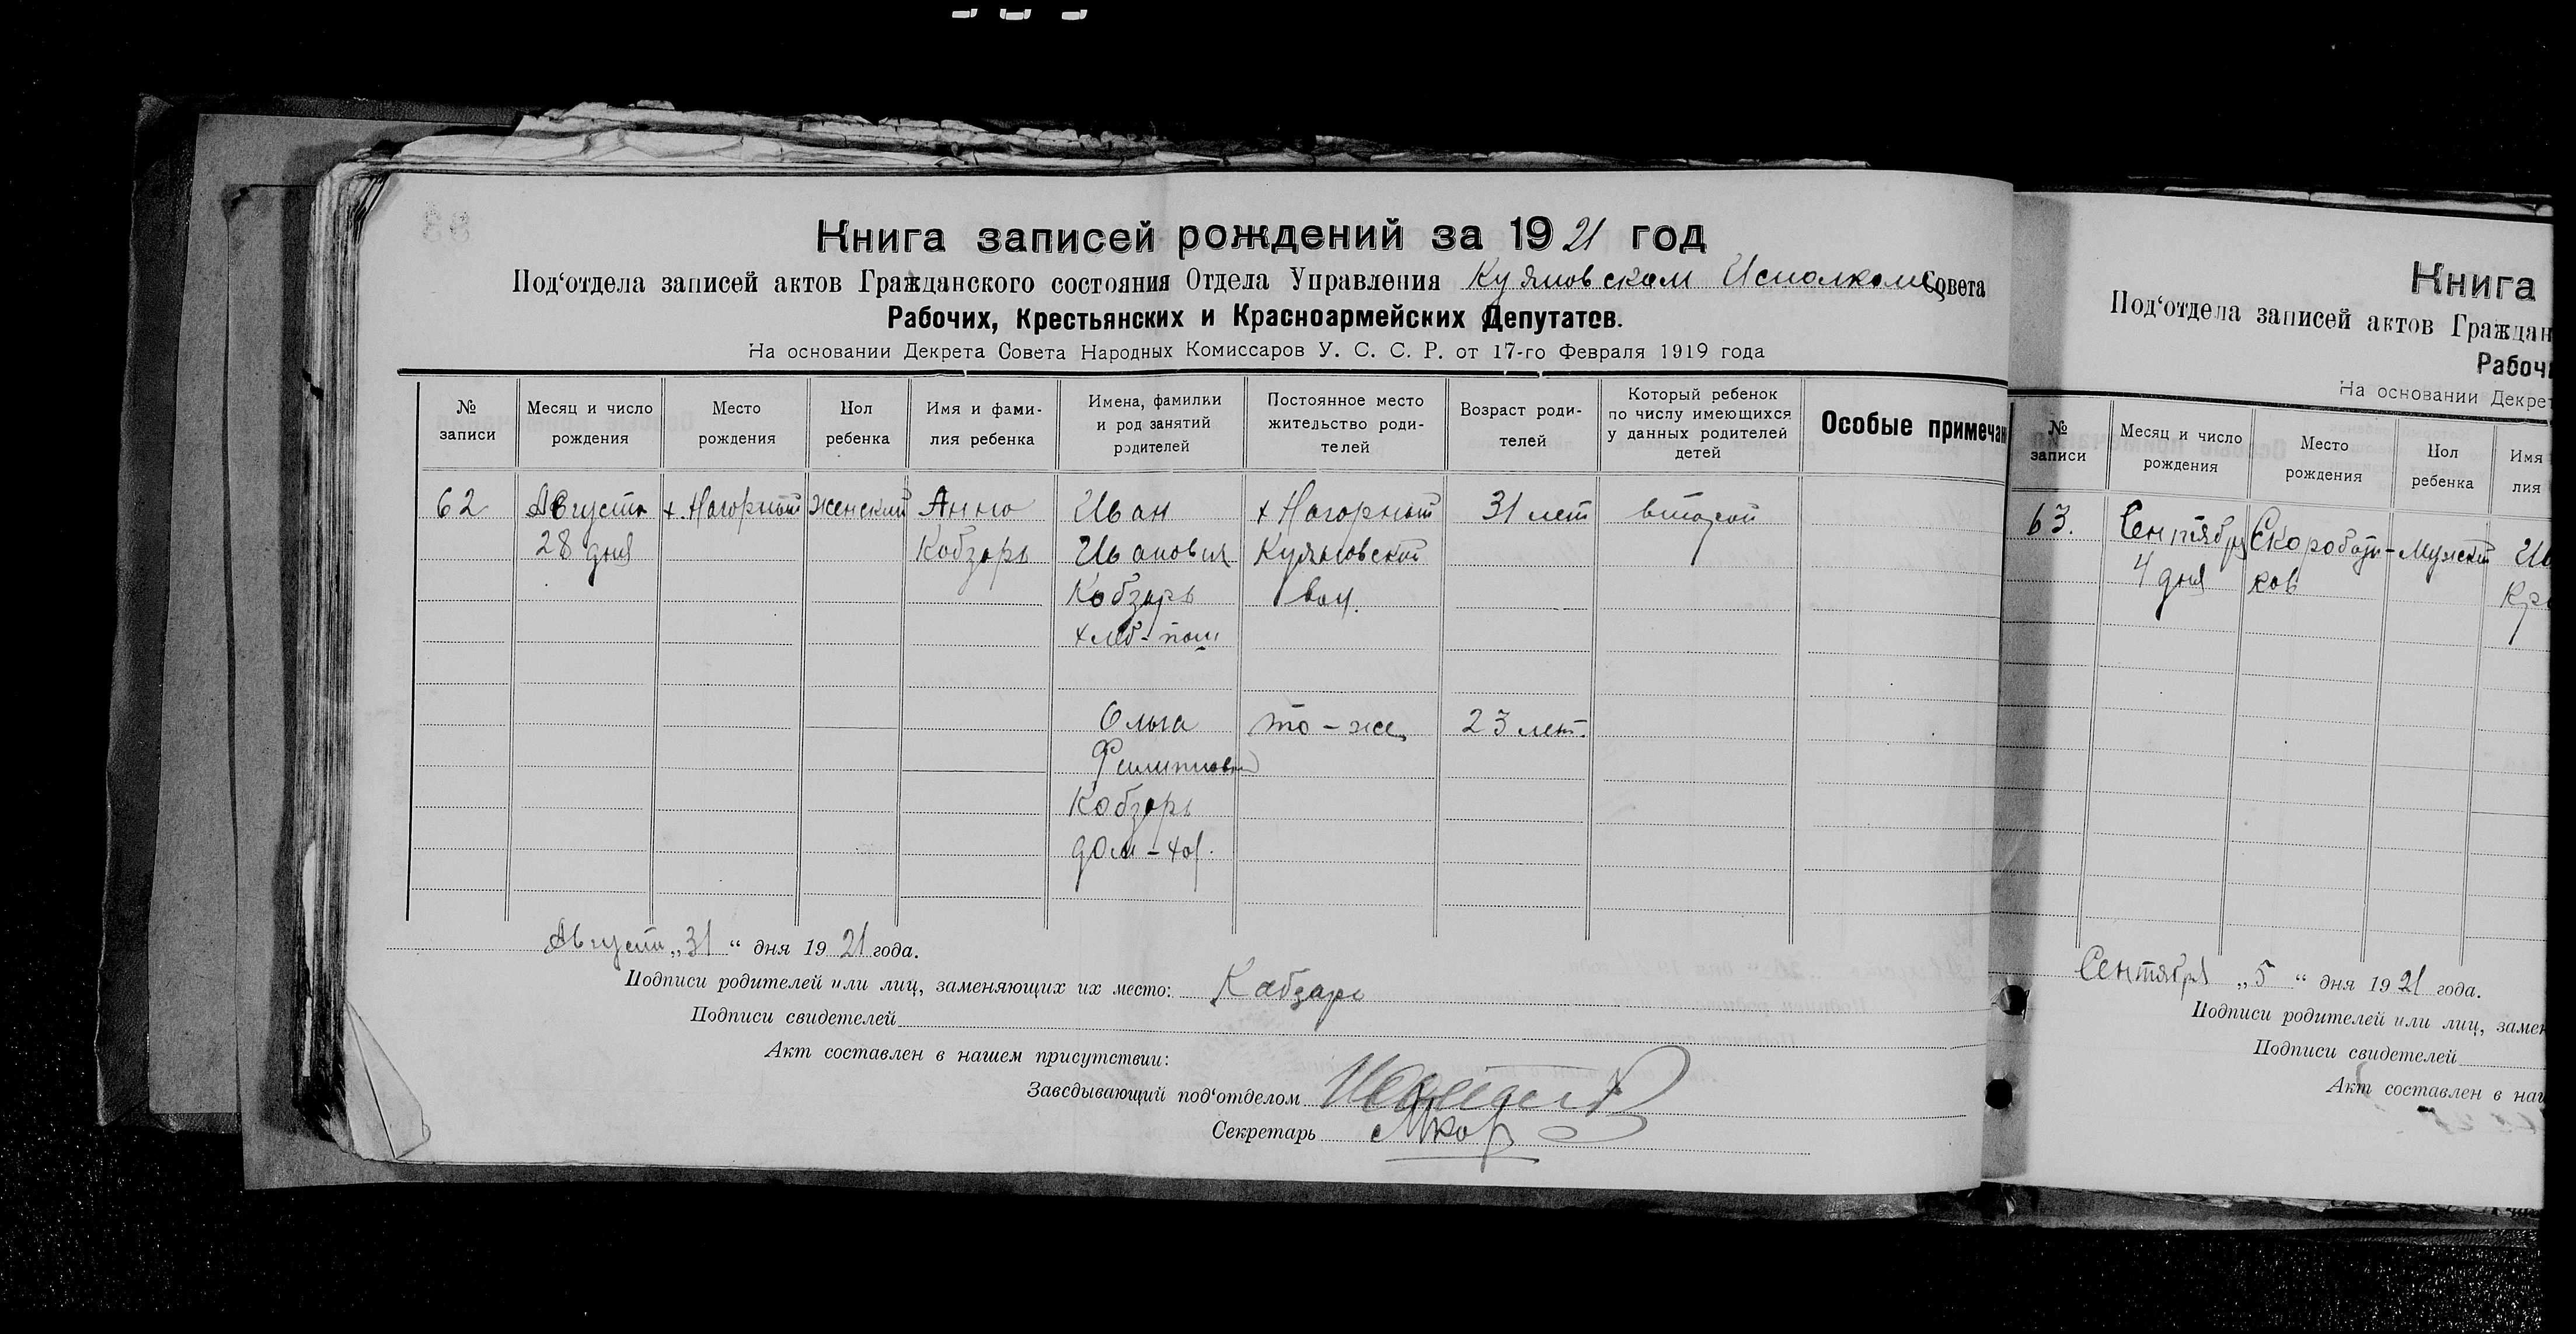 Книга записей рождений за 1921 год
Под‘отдела записей актов Гражданского состояния Отдела Управления Куямовскам Исполкоме Совета
Рабочих, Крестьянских и Красноармейских Депутатов.
На основании Декрета Совета Народных Комиссаров У. С. С. Р. от 17-го Февраля 1919 года
№ записи
Месяц и число рождения
Место рождения
Пол ребенка
Имя и фами-
лия ребенка
Имена, фамилии
и род занятий
родителей
Постоянное место
жительство роди-
телей
Возраст роди-
телей
Который ребенок
по числу имеющихся
у данных родителей
детей
Особые примечан
62 Августа х. Нагорный женский Анна Иван х Нагорный 31 лет второй
28 дня Кобзарь Иванович Куямовской
Кобзарь вол.
хлеб-паш
Ольга то-же 23 лет.
Филиповна
Кобзарь
дом-хоз.
Августа „31“ дня 1921 года.
Подписи родителей или лиц, заменяющих их место: Кабзарь
Подписи свидетелей
Акт составлен в нашем присутствии:
Заведывающий под‘отделом
Секретарь
Книга
Под‘отдела записей актов Граждан
Рабочи
На основании Декрет
№ записи
Месяц и число рождения
Место рождения
Пол ребенка
Имя
лия
63. Сентября Скоробогать- Мужский Ив
4 дня ков Кр
Сентября „5“ дня 1921 года.
Подписи родителей или лиц, замен
Подписи свидетелей
Акт составлен в наш